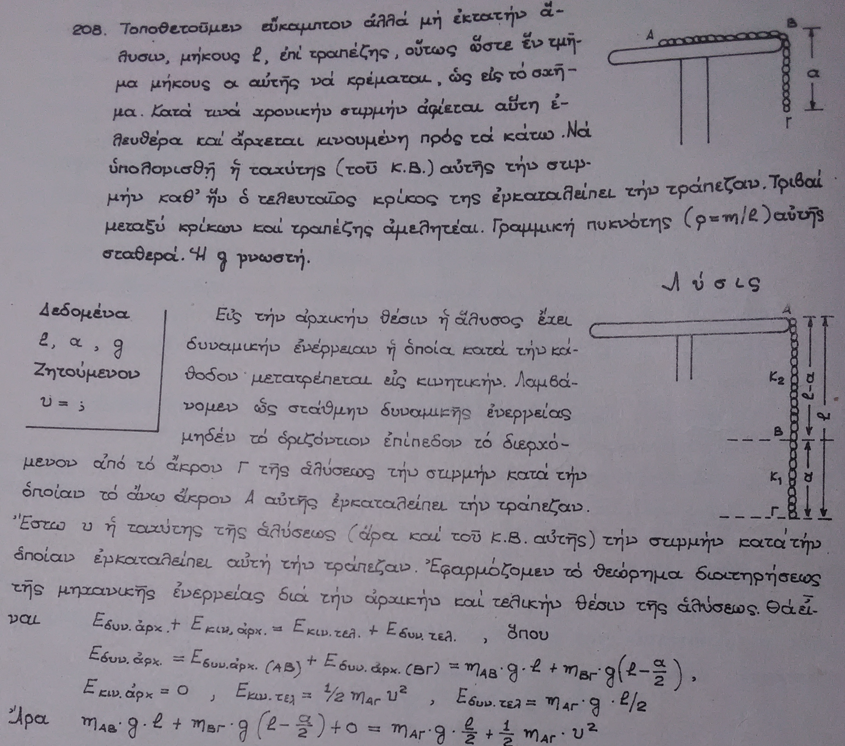 208. Τοποθετοῦμεν εὔκαμπτον ἀλλά μή ἐκτατήν ἅ-
λυσιν, μήκους ℓ, ἐπί τραπέζης, οὕτως ὥστε ἕν τμῆ-
μα μήκους α αὐτῆς νά κρέμαται, ὡς εἰς τό σχῆ-
μα. Κατά τινά χρονικήν στιγμήν ἀφίεται αὕτη ἐ-
λευθέρα καί ἄρχεται κινουμένη πρός τά κάτω. Νά
ὑπολογισθῇ ἡ ταχύτης (τοῦ Κ.Β.) αὐτῆς τήν στιγ-
μήν καθ' ἥν ὁ τελευταῖος κρίκος της ἐγκαταλείπει τήν τράπεζαν. Τριβαί
μεταξύ κρίκων καί τραπέζης ἀμελητέαι. Γραμμική πυκνότης (ρ=m/ℓ) αὐτῆς
σταθερά. Ἡ g γνωστή.
A
B
α
Γ
Λύσις
Δεδομένα
ℓ, α, g
Ζητούμενον
υ = ;
Εἰς τήν ἀρχικήν θέσιν ἡ ἅλυσος ἔχει
δυναμικήν ἐνέργειαν ἡ ὁποία κατά τήν κά-
θοδον μετατρέπεται εἰς κινητικήν. Λαμβά-
νομεν ὡς στάθμην δυναμικῆς ἐνεργείας
μηδέν τό ὁριζόντιον ἐπίπεδον τό διερχό-
μενον ἀπό τό ἄκρον Γ τῆς ἁλύσεως τήν στιγμήν κατά τήν
ὁποίαν τό ἄνω ἄκρον Α αὐτῆς ἐγκαταλείπει τήν τράπεζαν.
Ἔστω υ ἡ ταχύτης τῆς ἁλύσεως (ἄρα καί τοῦ Κ.Β. αὐτῆς) τήν στιγμήν κατά τήν
ὁποίαν ἐγκαταλείπει αὐτή τήν τράπεζαν. Ἐφαρμόζομεν τό θεώρημα διατηρήσεως
τῆς μηχανικῆς ἐνεργείας διά τήν ἀρχικήν καί τελικήν θέσιν τῆς ἁλύσεως. Θά εἶ-
ναι Εδυν.ἀρχ. + Εκιν.ἀρχ. = Εκιν.τελ. + Εδυν.τελ. , ὅπου
Εδυν.ἀρχ. = Εδυν.ἀρχ.(ΑΒ) + Εδυν.ἀρχ.(ΒΓ) = mΑΒ·g·ℓ + mΒΓ·g(ℓ-α/2),
Εκιν.ἀρχ = 0 , Εκιν.τελ = 1/2 mΑΓ υ² , Εδυν.τελ = mΑΓ·g·ℓ/2
Ἄρα mΑΒ·g·ℓ + mΒΓ·g(ℓ-α/2)+0 = mΑΓ·g·ℓ/2 + 1/2 mΑΓ·υ²
A
K₂
ℓ-α
ℓ
B
K₁
α
Γ